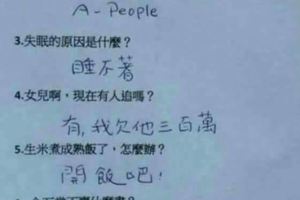 A - People
3.失眠的原因是什麼？
睡不著
4.女兒啊，現在有人追嗎？
有,我欠他三百萬
5.生米煮成熟飯了，怎麼辦？
開飯吧!